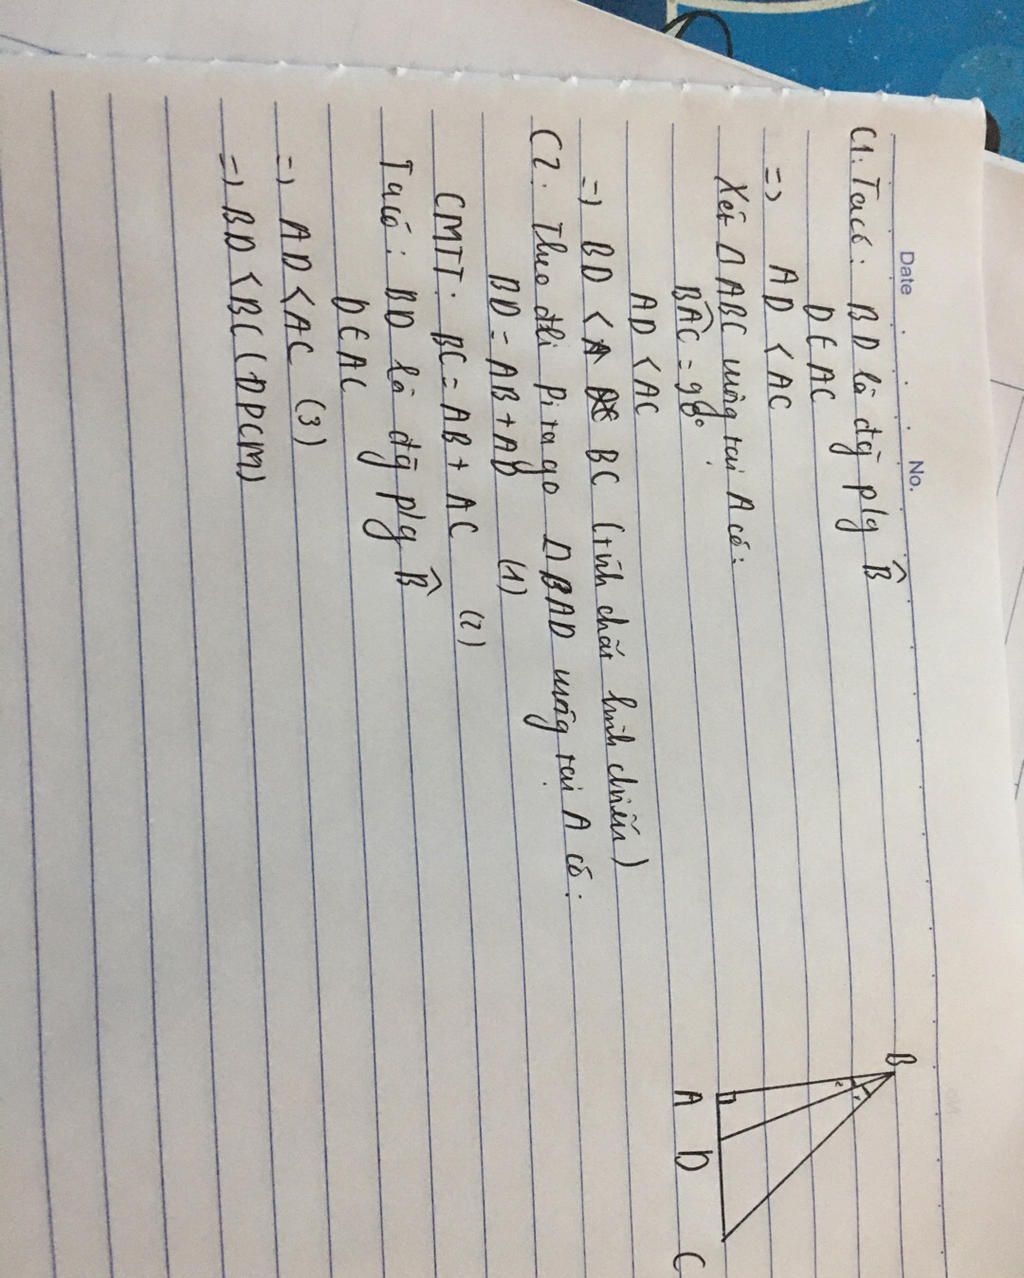 Date No.
C1. Ta có: BD là đg p/g B̂
D ∈ AC
=) AD < AC
Xét Δ ABC vuông tại A có:
BÂC = 90°
AD < AC
=) BD < BC (tính chất hình chiếu)
C2. Theo đli Pitago Δ BAD vuông tại A có:
BD = AB + AD (1)
CMTT: BC = AB + AC (2)
Ta có: BD là đg p/g B̂
D ∈ AC
=) AD < AC (3)
=) BD < BC (DPCM)
B
2 1
A D C